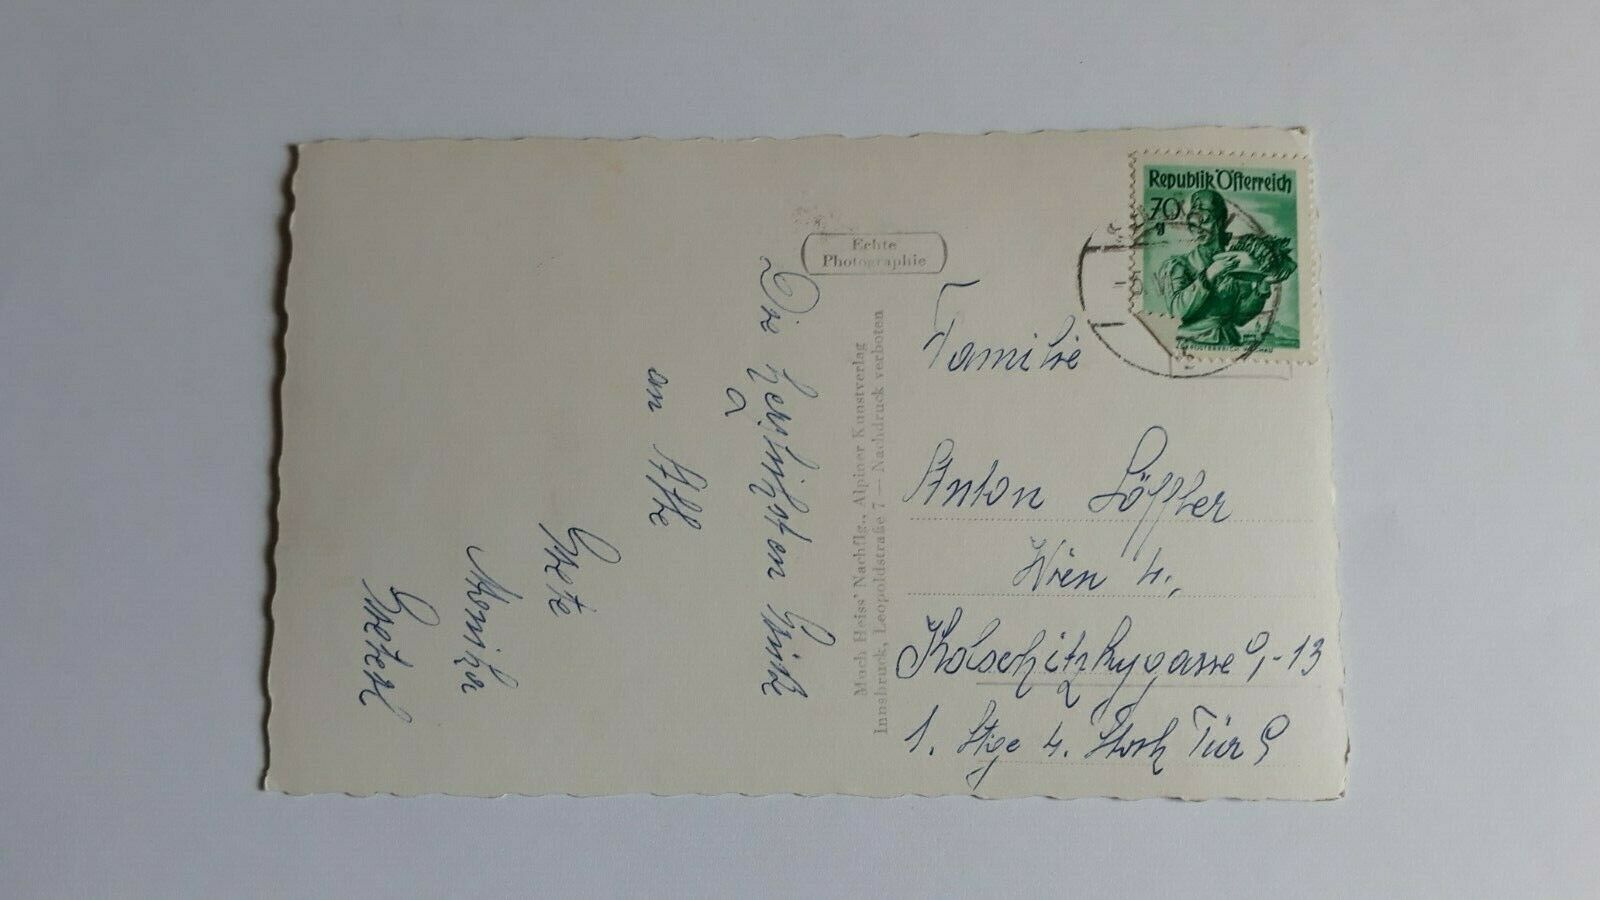 Echte
Photographie
Republik Österreich
70
g
Die herzlichsten Grüße
an Alle
Grete
Monika
Much Heiss' Nachflg., Alpiner Kunstverlag
Innsbruck, Leopoldstraße 7 — Nachdruck verboten
Familie
Anton Löffler
Wien 4.,
Kolschitzkygasse 9-13
1. Stge 4. Stock Tür 9